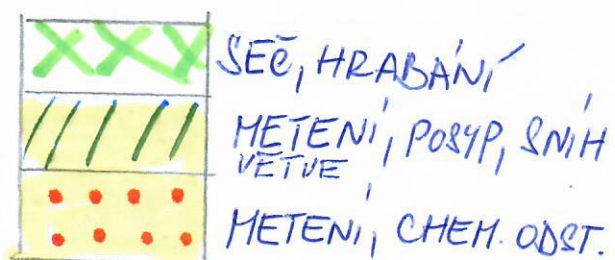 SEČ, HRABÁNÍ
METENÍ, POSYP, SNÍH
VĚTVE
METENÍ, CHEM. ODST.